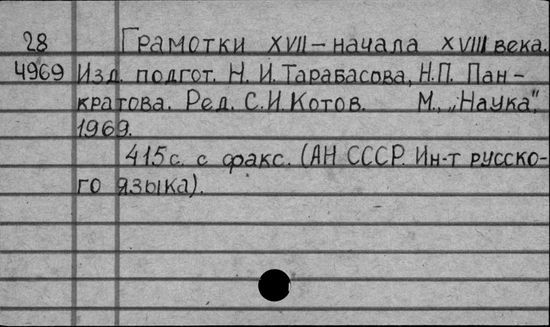 28 Грамотки XVII – начала XVIII века.
4969 Изд. подгот. Н. И. Тарабасова, Н.П. Пан-
кратова. Ред. С.И. Котов. М., „Наука",
1969.
415 с. с факс. (АН СССР. Ин-т русско-
го языка).